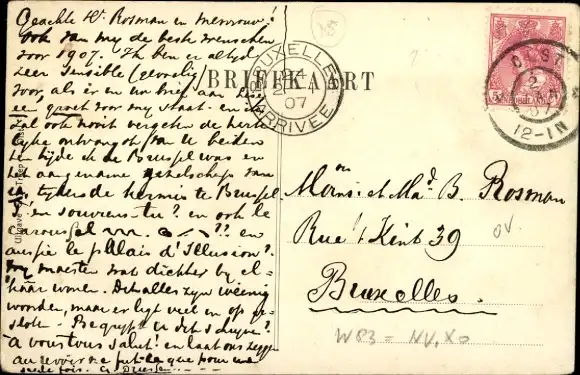 Geachte Hr. Rosman en mevrouw!
Ook van my de beste wenschen
voor 1907. Ik ben er altyd
zeer sensible (gevoelig
voor, als er en brief aan
groet voor my staat en
zal ook nooit vergeten de harte-
lyke ontvangst van U beiden
ten tyde ik de Brussel was en
het aangename gezelschap van
U tydens de kermis te Brussel
S'en souvenez-tu? en ook le
carousel ?? en
aussie le palais d'Illusion?
Wy moesten wat dichter by el-
kaar wonen. Dit alles zyn weinig
woorden, maar er ligt veel en op ge-
sloten. Begrypt U dit schryven?
A vous tous salut! en laat ons zeggen
au revoir ne fut-ce que pour une
seule fois.
BRIEFKAART
BRUXELLES
07
ARRIVEE
12-1N
NEDERLAND
Mons. et Mad. B. Rosman
Rue 't Kint 39
Bruxelles.
OV.